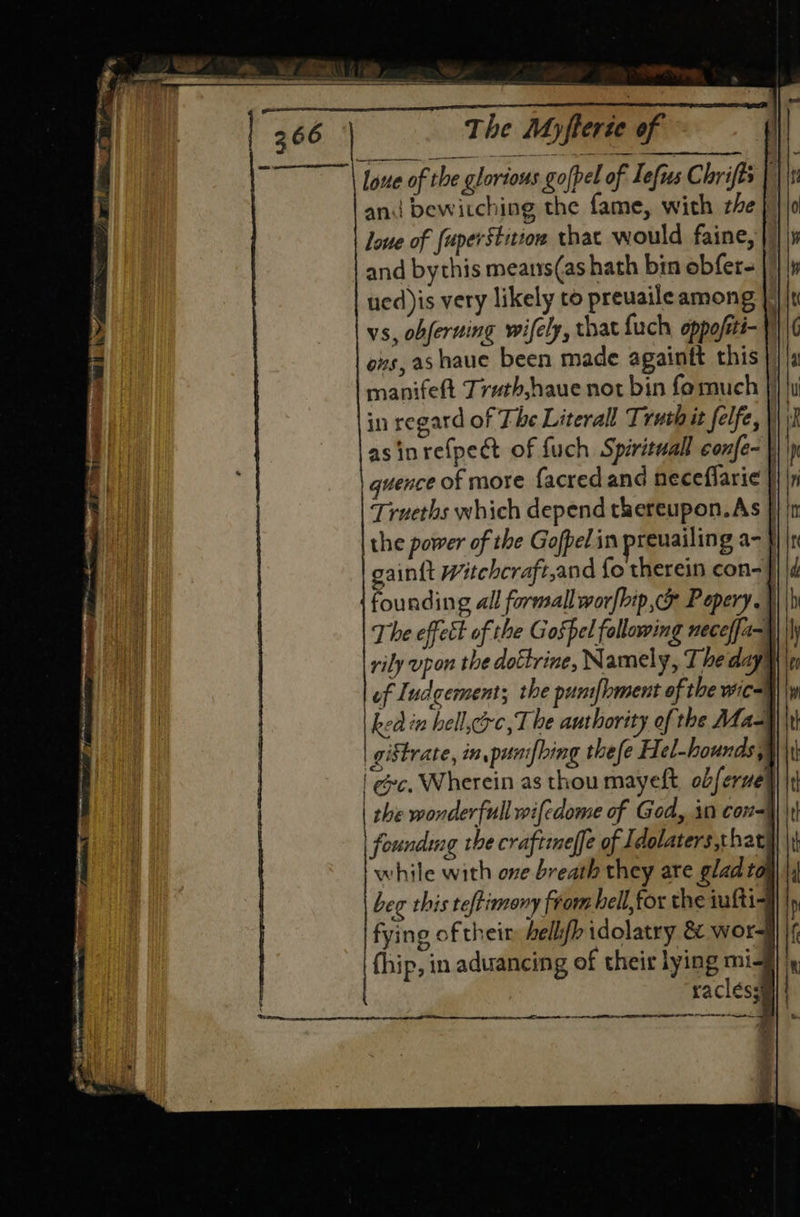 366 The Myſterie of
loue of the glorious goſpel of Ieſus Chriſts
and bewitching the ſame, with the
loue of ſuperſtition that would faine,
and bythis means(as hath bin obſer-
ued)is very likely to preuaile among
vs, obſeruing wiſely, that ſuch oppoſiti-
ons, as haue been made againſt this
manifeſt Truth,haue not bin ſo much
in regard of The Literall Truth it ſelfe,
as in reſpect of ſuch Spirituall conſe-
quence of more ſacred and neceſſarie
Trueths which depend thereupon. As
the power of the Goſpel in preuailing a-
gainſt Witchcraft,and ſo therein con-
founding all formall worſhip,& Popery.
The effect of the Goſpel following neceſſa-
rily vpon the doctrine, Namely, The day
of Iudgement; the puniſhment of the wic-
ked in hell,&c,The authority of the Ma-
giſtrate, in puniſhing theſe Hel-hounds,
&c. Wherein as thou mayeſt obſerue
the wonderfull wiſedome of God, in con-
founding the craftineſſe of Idolaters,that
while with one breath they are glad to
beg this teſtimony from hell,for the iuſti-
fying of their helliſh idolatry & wor-
ſhip, in aduancing of their lying mi-
racles;